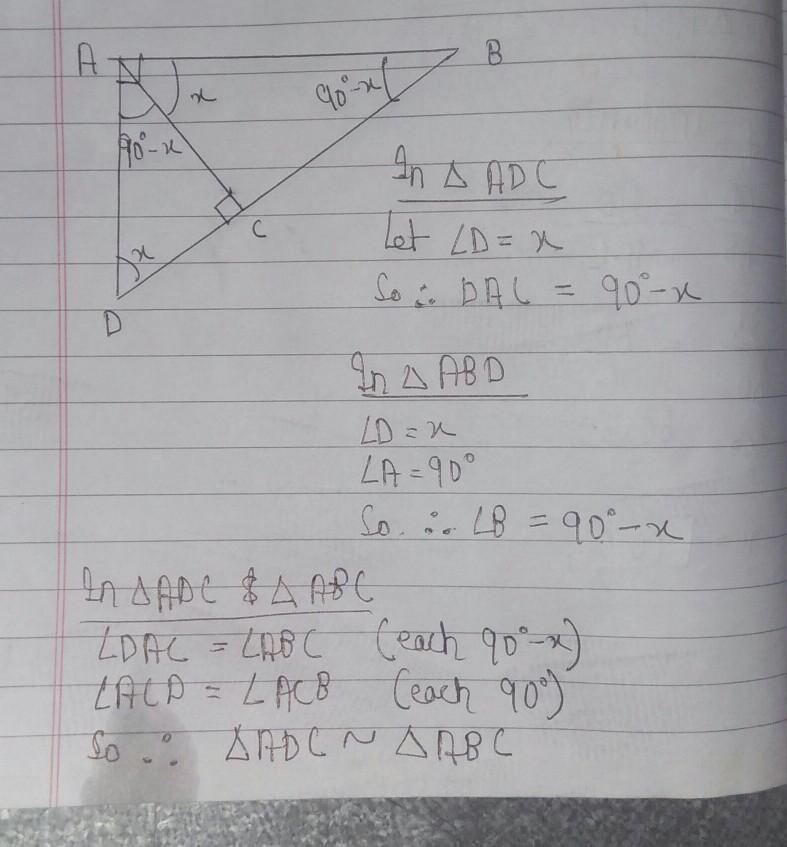 A
B
x
90°-x
90°-x
C
x
D
In Δ ADC
Let ∠D = x
So ∴ DAC = 90°-x
In Δ ABD
∠D = x
∠A = 90°
So. ∴ ∠B = 90°-x
In ΔADC & Δ ABC
∠DAC = ∠ABC (each 90°-x)
∠ACD = ∠ACB (each 90°)
So ∴ ΔADC ~ ΔABC